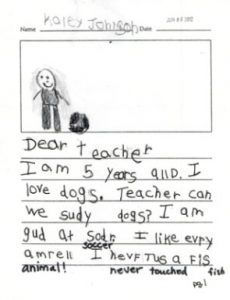 Name Kaley Johnson Date
Dear teacher
I am 5 years allD. I
love dogs. Teacher can
we sudy dogs? I am
gud at Sodr. I like evry
soccer
amrell I hevF Tus a FIS
animal! never touched fish
pg 1